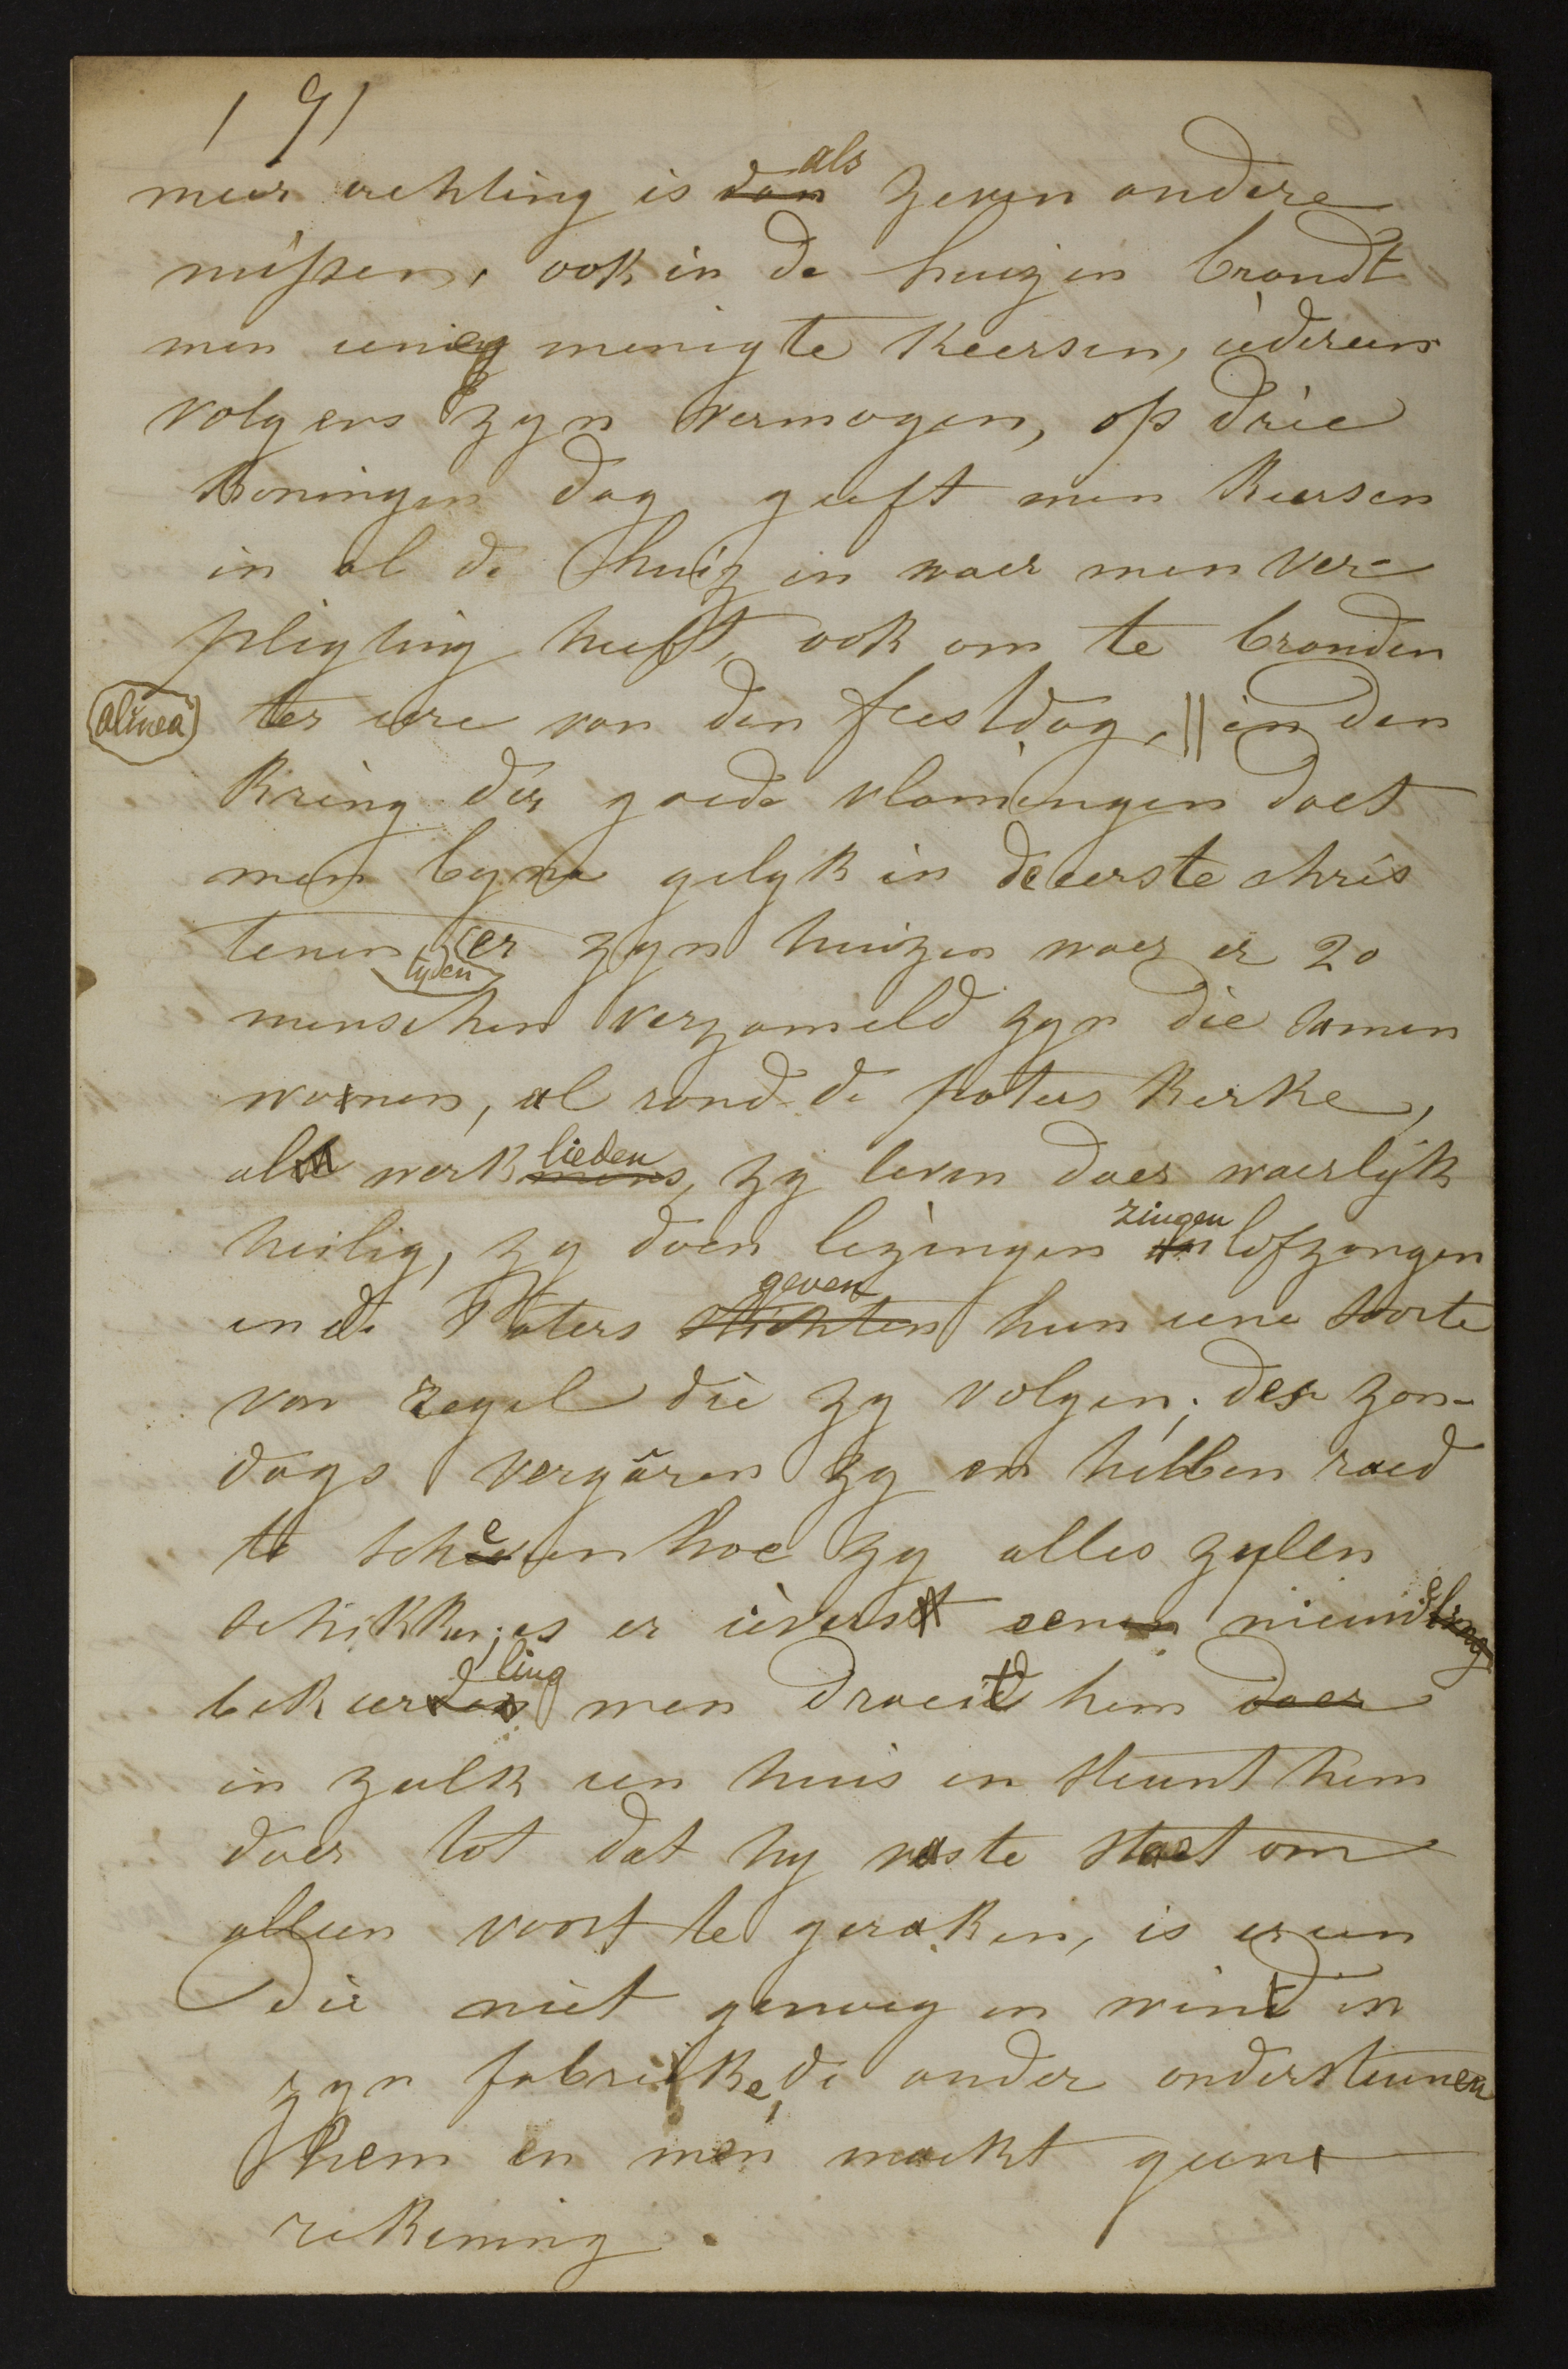 191
meer achting is dan als zeven andere
missen, ook in de huizen brandt
men eene menigte keersen, iedereen
volgens zyn vermogen, op drie
koningen dag geeft men keersen
in al de huizen waer men ver-
pligting heeft, ook om te branden
(alinea) ter eere van den feestdag, || in den
kring der goede vlamingen doet
men byna gelyk in de eerste chris
tenen tyden, er zyn huizen waer er 20
menschen verzameld zyn die samen
woonen, al rond de paters kerke,
al werkmens lieden, zy leven daer waerlyk
heilig, zy doen lezingen en zingen lofzangen
en de Paters stichten geven hun eene soorte
van regel die zy volgen; des zon-
dags vergâren zy en hebben raed
te scheven hoe zy alles zullen
schikken; is er ieverst eenen nieuw
bekeerden ling men draeit hem daer
in zulk een huis en steunt hem
daer tot dat hy vaste staet om
alleen voort te geraken, is er een
die niet genoeg en wind in
zyn fabrieke, de ander ondersteunen
hem en men maekt geene
rekening.